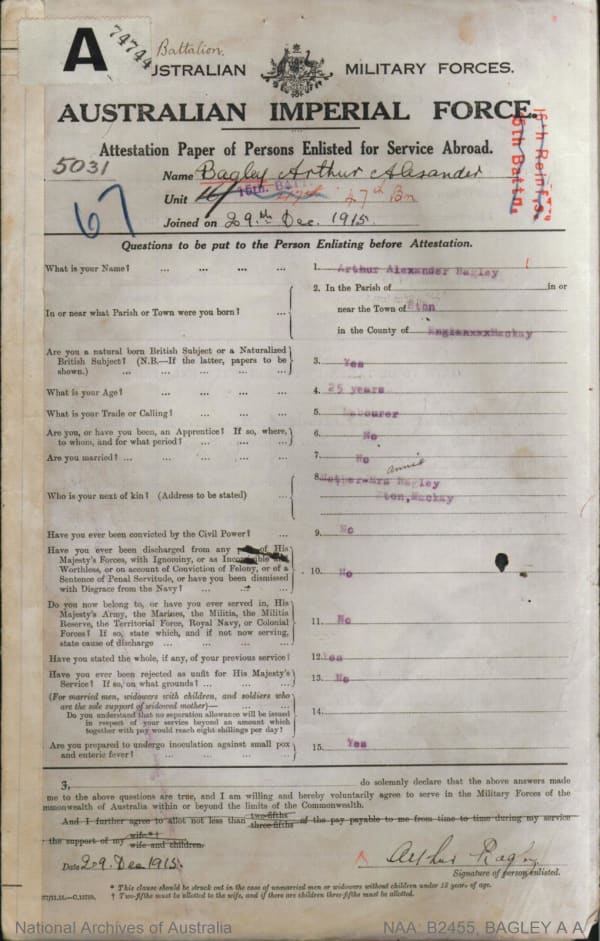 A
74744
Battalion.
USTRALIAN MILITARY FORCES.
AUSTRALIAN IMPERIAL FORCE.
Attestation Paper of Persons Enlisted for Service Abroad.
16th Reinfts.
5031
Name Bagley Arthur Alexander
Unit 47th Bn
67
Joined on 29th Dec. 1915.
Questions to be put to the Person Enlisting before Attestation.
What is your Name? ... ... ... ... 1. Arthur Alexander Bagley
2. In the Parish of in or
In or near what Parish or Town were you born? ... near the Town of Eton
in the County of Mackay
Are you a natural born British Subject or a Naturalized
British Subject? (N.B.—If the latter, papers to be
shown.) ... ... ... ... 3. Yes
What is your Age? ... ... ... ... 4. 25 years
What is your Trade or Calling? ... ... ... 5. Labourer
Are you, or have you been, an Apprentice? If so, where,
to whom, and for what period? ... ... ... 6. No
Are you married? ... ... ... ... ... 7. No
annie
8. Mother-Mrs Bagley
Who is your next of kin? (Address to be stated) ... ton, Mackay
Have you ever been convicted by the Civil Power? ... 9. No
Have you ever been discharged from any of His
Majesty's Forces, with Ignominy, or as
Worthless, or on account of Conviction of Felony, or of a
Sentence of Penal Servitude, or have you been dismissed
with Disgrace from the Navy? ... ... ... 10. No
Do you now belong to, or have you ever served in, His
Majesty's Army, the Marines, the Militia, the Militia
Reserve, the Territorial Force, Royal Navy, or Colonial
Forces? If so, state which, and if not now serving,
state cause of discharge ... ... ... ... 11. No
Have you stated the whole, if any, of your previous service? 12. Yes
Have you ever been rejected as unfit for His Majesty's
Service? If so, on what grounds? ... ... ... 13. No
(For married men, widowers with children, and soldiers who
are the sole support of widowed mother)—
Do you understand that no separation allowance will be issued
in respect of your service beyond an amount which
together with pay would reach eight shillings per day? 14.
Are you prepared to undergo inoculation against small pox
and enteric fever? ... ... ... ... 15. Yes
I, do solemnly declare that the above answers made
me to the above questions are true, and I am willing and hereby voluntarily agree to serve in the Military Forces of the
mmonwealth of Australia within or beyond the limits of the Commonwealth.
And I further agree to allot not less than two-fifths three-fifths of the pay payable to me from time to time during my service
the support of my wife*† wife and children.
Date 29 Dec 1915. Arthur Bagley
Signature of person enlisted.
* This clause should be struck out in the case of unmarried men or widowers without children under 18 years of age.
† Two-fifths must be allotted to the wife, and if there are children three-fifths must be allotted.
National Archives of Australia NAA: B2455, BAGLEY A A